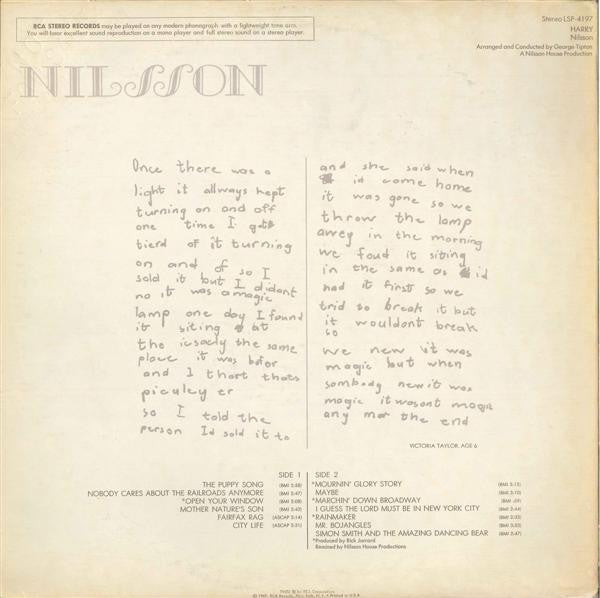 RCA STEREO RECORDS may be played on any modern phonograph with a lightweight tone arm.
You will hear excellent sound reproduction on a mono player and full stereo sound on a stereo player.
Stereo LSP-4197
HARRY
Nilsson
Arranged and Conducted by George Tipton
A Nilsson House Production
NILSSON
Once there was a
light it allways kept
turning on and off
one time I got
tierd of it turning
on and of so I
sold it but I didant
no it was a magic
lamp one day I found
it siting at
the icsacly the same
place it was befor
and I thort thats
piculeyer
so I told the
person I'd sold it to
and she said when
id come home
it was gone so we
throw the lamp
awey in the morning
we foud it siting
in the same as id
had it first so we
trid so break it but
it wouldont break
so
we new it was
magic but when
sombody new it was
magic it wasont magic
any mor the end
VICTORIA TAYLOR, AGE 6
SIDE 1
THE PUPPY SONG (BMI 2:38)
NOBODY CARES ABOUT THE RAILROADS ANYMORE (BMI 2:47)
*OPEN YOUR WINDOW (BMI 2:08)
MOTHER NATURE'S SON (BMI 2:40)
FAIRFAX RAG (ASCAP 2:14)
CITY LIFE (ASCAP 2:31)
SIDE 2
*MOURNIN' GLORY STORY (BMI 2:13)
MAYBE (BMI 3:10)
*MARCHIN' DOWN BROADWAY (BMI :59)
I GUESS THE LORD MUST BE IN NEW YORK CITY (BMI 2:44)
*RAINMAKER (BMI 2:35)
MR. BOJANGLES (BMI 3:53)
SIMON SMITH AND THE AMAZING DANCING BEAR (BMI 2:47)
*Produced by Rick Jarrard
Remixed by Nilsson House Productions
© 1969, RCA Records, New York, N.Y. • Printed in U.S.A.